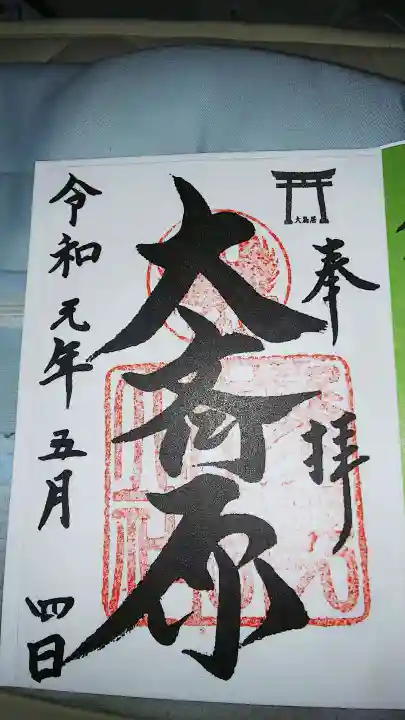 大鳥居
奉拝
大斎原
令和元年五月四日